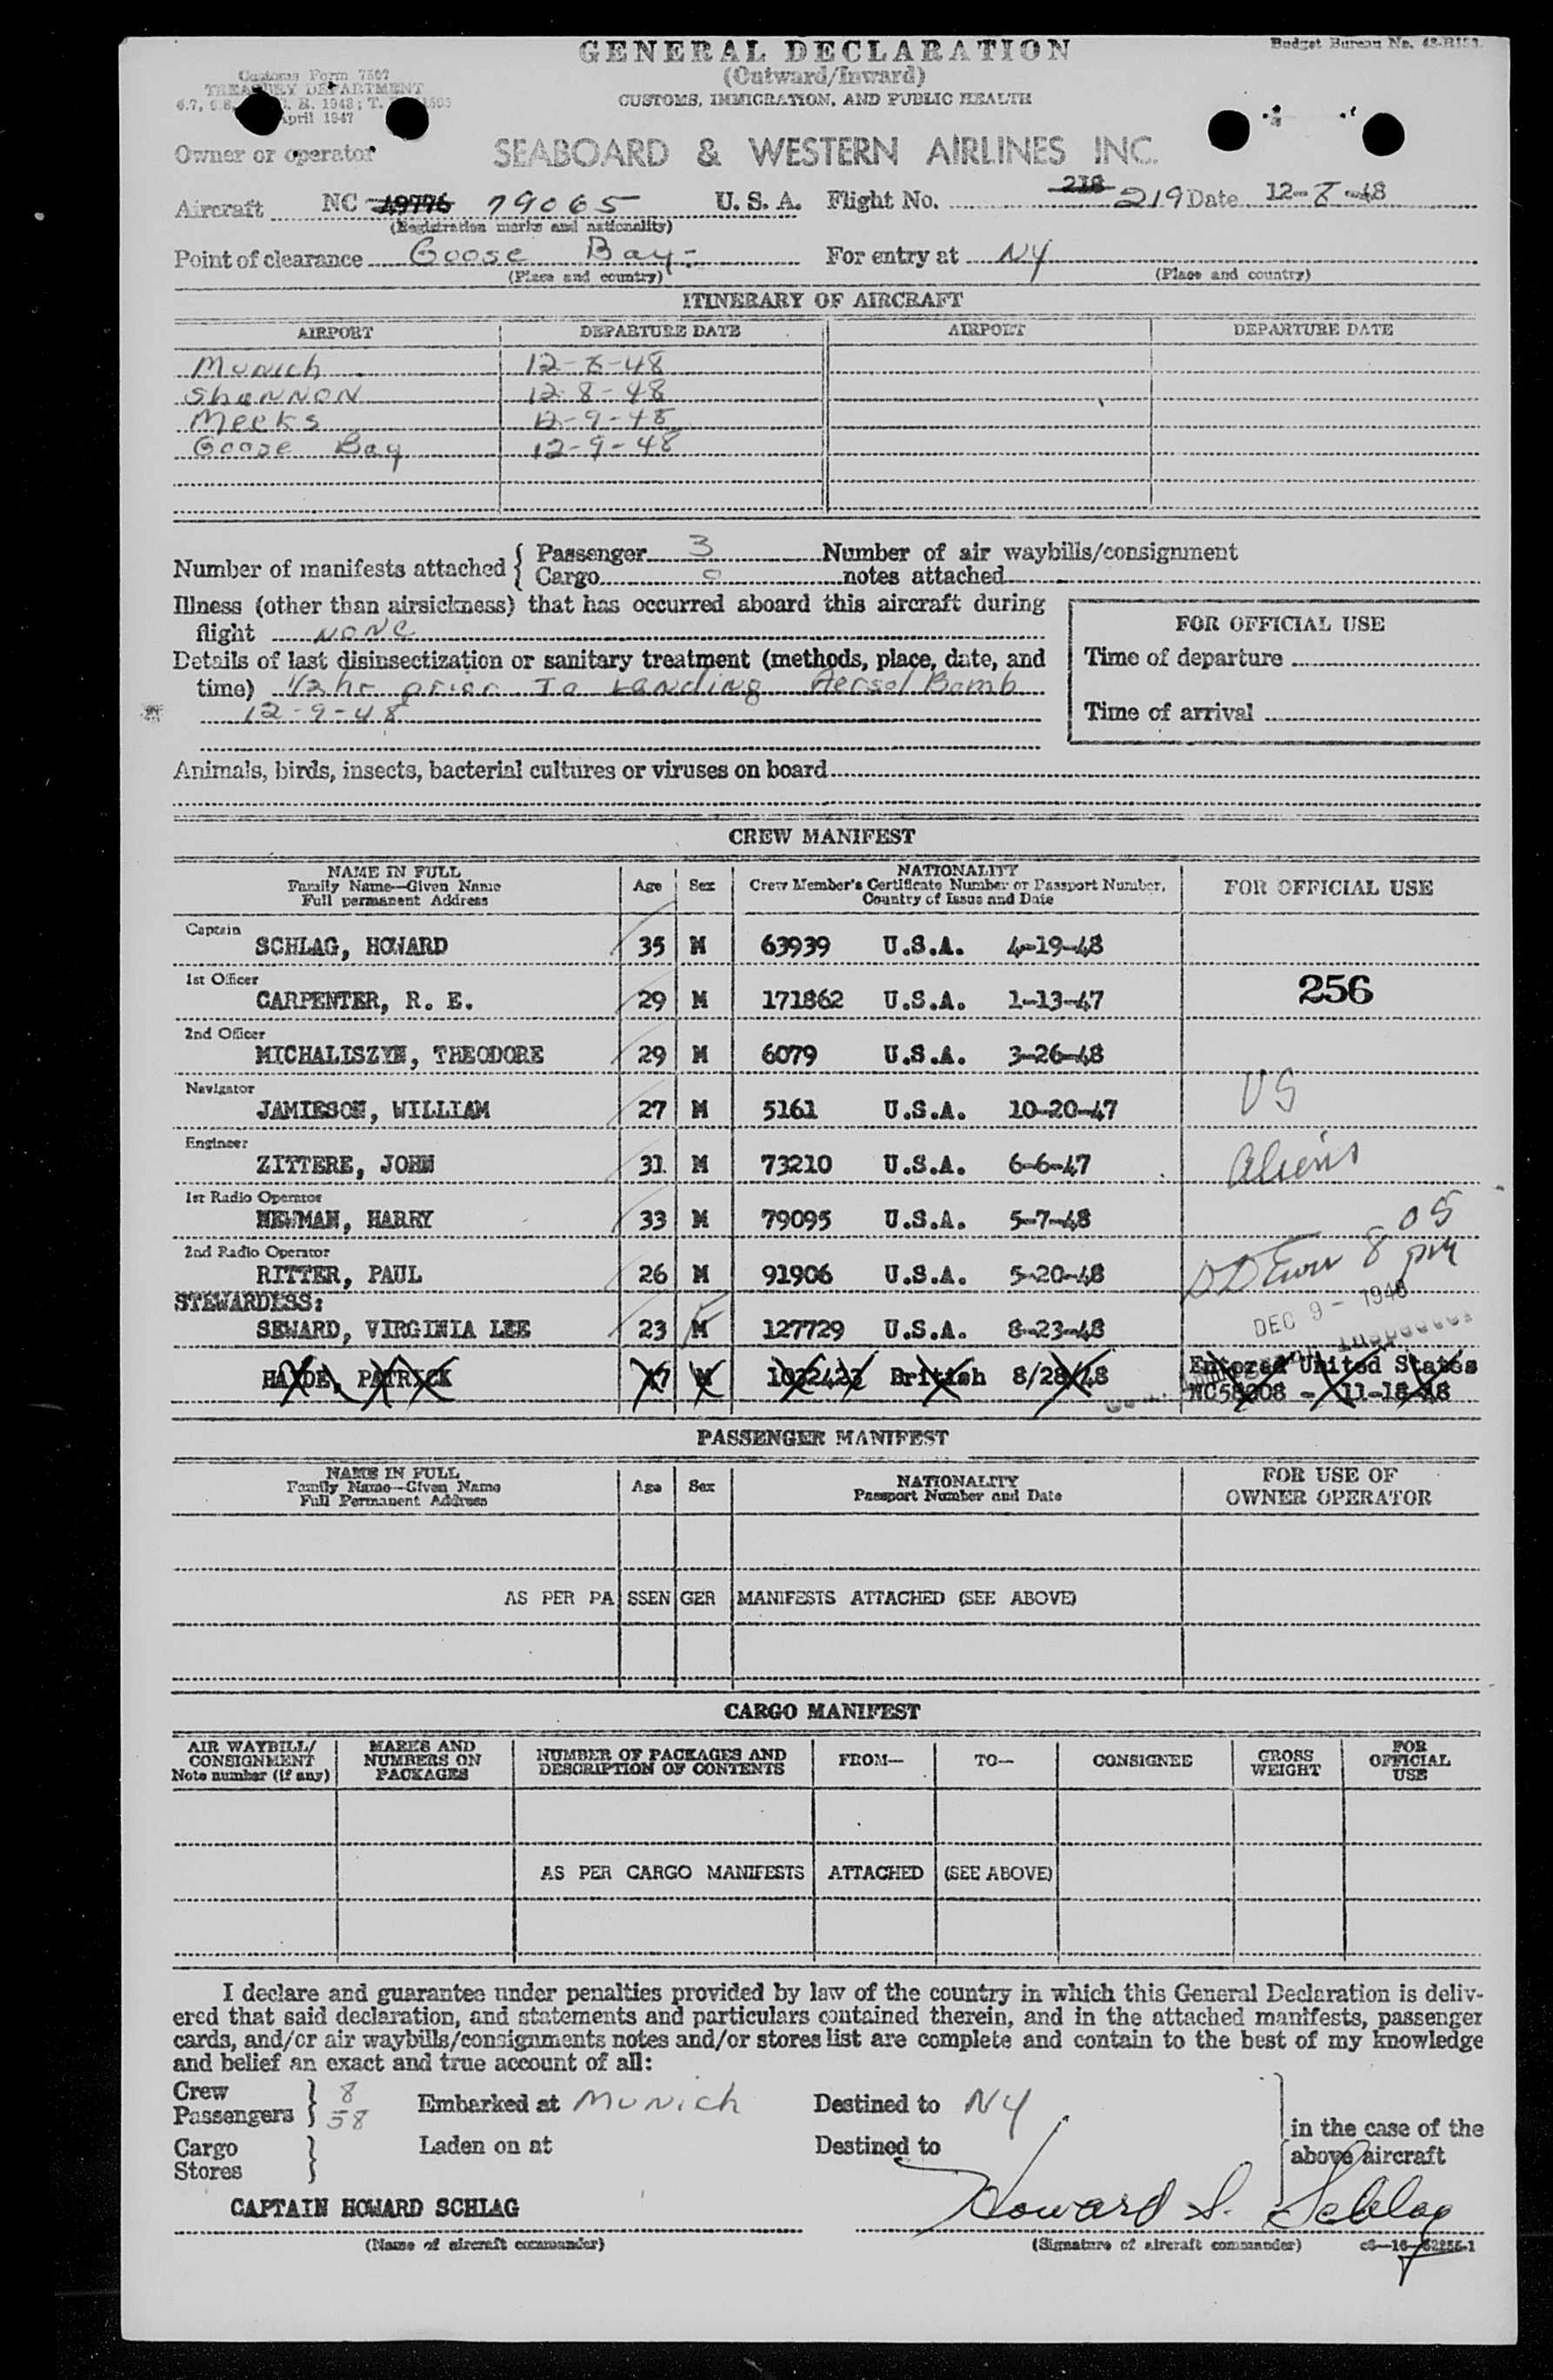 GENERAL DECLARATION
(Outward/Inward)
CUSTOMS, IMMIGRATION, AND PUBLIC HEALTH
Budget Bureau No.
Customs Form 7507
TREASURY DEPARTMENT
April 1947
Owner or operator SEABOARD & WESTERN AIRLINES INC.
Aircraft NC 49776 79065 U. S. A. Flight No. 218 219 Date 12-8-48
(Registration marks and nationality)
Point of clearance Goose Bay For entry at NY
(Place and country) (Place and country)
ITINERARY OF AIRCRAFT
AIRPORT DEPARTURE DATE AIRPORT DEPARTURE DATE
Munich 12-8-48
Shannon 12-8-48
Meeks 12-9-48
Goose Bay 12-9-48
Number of manifests attached { Passenger 3 Number of air waybills/consignment
Cargo 0 notes attached
Illness (other than airsickness) that has occurred aboard this aircraft during
flight none
FOR OFFICIAL USE
Details of last disinsectization or sanitary treatment (methods, place, date, and
Time of departure
time) 1/2 hr prior To Landing Aersol Bomb
12-9-48
Time of arrival
Animals, birds, insects, bacterial cultures or viruses on board
CREW MANIFEST
NAME IN FULL
Family Name—Given Name
Full permanent Address
Age Sex
NATIONALITY
Crew Member's Certificate Number or Passport Number,
Country of Issue and Date
FOR OFFICIAL USE
Captain
SCHLAG, HOWARD 35 M 63939 U.S.A. 4-19-48
1st Officer
256
CARPENTER, R. E. 29 M 171862 U.S.A. 1-13-47
2nd Officer
MICHALISZYN, THEODORE 29 M 6079 U.S.A. 3-26-48
Navigator
US
JAMIESON, WILLIAM 27 M 5161 U.S.A. 10-20-47
Engineer
Aliens
ZITTERE, JOHN 31 M 73210 U.S.A. 6-6-47
1st Radio Operator
NEWMAN, HARRY 33 M 79095 U.S.A. 5-7-48
8 05 pm
2nd Radio Operator
RITTER, PAUL 26 M 91906 U.S.A. 5-20-48
STEWARDESS:
DEC 9 - 1948
SEWARD, VIRGINIA LEE 23 M F 127729 U.S.A. 8-23-48
Inspector
PATRICK 17 M 1022423 British 8/28/48 Entered United States
NC58208 - 11-18-48
PASSENGER MANIFEST
NAME IN FULL
Family Name—Given Name
Full Permanent Address
Age Sex
NATIONALITY
Passport Number and Date
FOR USE OF
OWNER OPERATOR
AS PER PASSENGER MANIFESTS ATTACHED (SEE ABOVE)
CARGO MANIFEST
AIR WAYBILL/
CONSIGNMENT
Note number (if any)
MARKS AND
NUMBERS ON
PACKAGES
NUMBER OF PACKAGES AND
DESCRIPTION OF CONTENTS
FROM— TO— CONSIGNEE
GROSS
WEIGHT
FOR
OFFICIAL
USE
AS PER CARGO MANIFESTS ATTACHED (SEE ABOVE)
I declare and guarantee under penalties provided by law of the country in which this General Declaration is deliv-
ered that said declaration, and statements and particulars contained therein, and in the attached manifests, passenger
cards, and/or air waybills/consignments notes and/or stores list are complete and contain to the best of my knowledge
and belief an exact and true account of all:
Crew 8
Passengers 58 Embarked at Munich Destined to NY
in the case of the
above aircraft
Cargo
Stores Laden on at Destined to
CAPTAIN HOWARD SCHLAG Howard S. Schlag
(Name of aircraft commander) (Signature of aircraft commander)